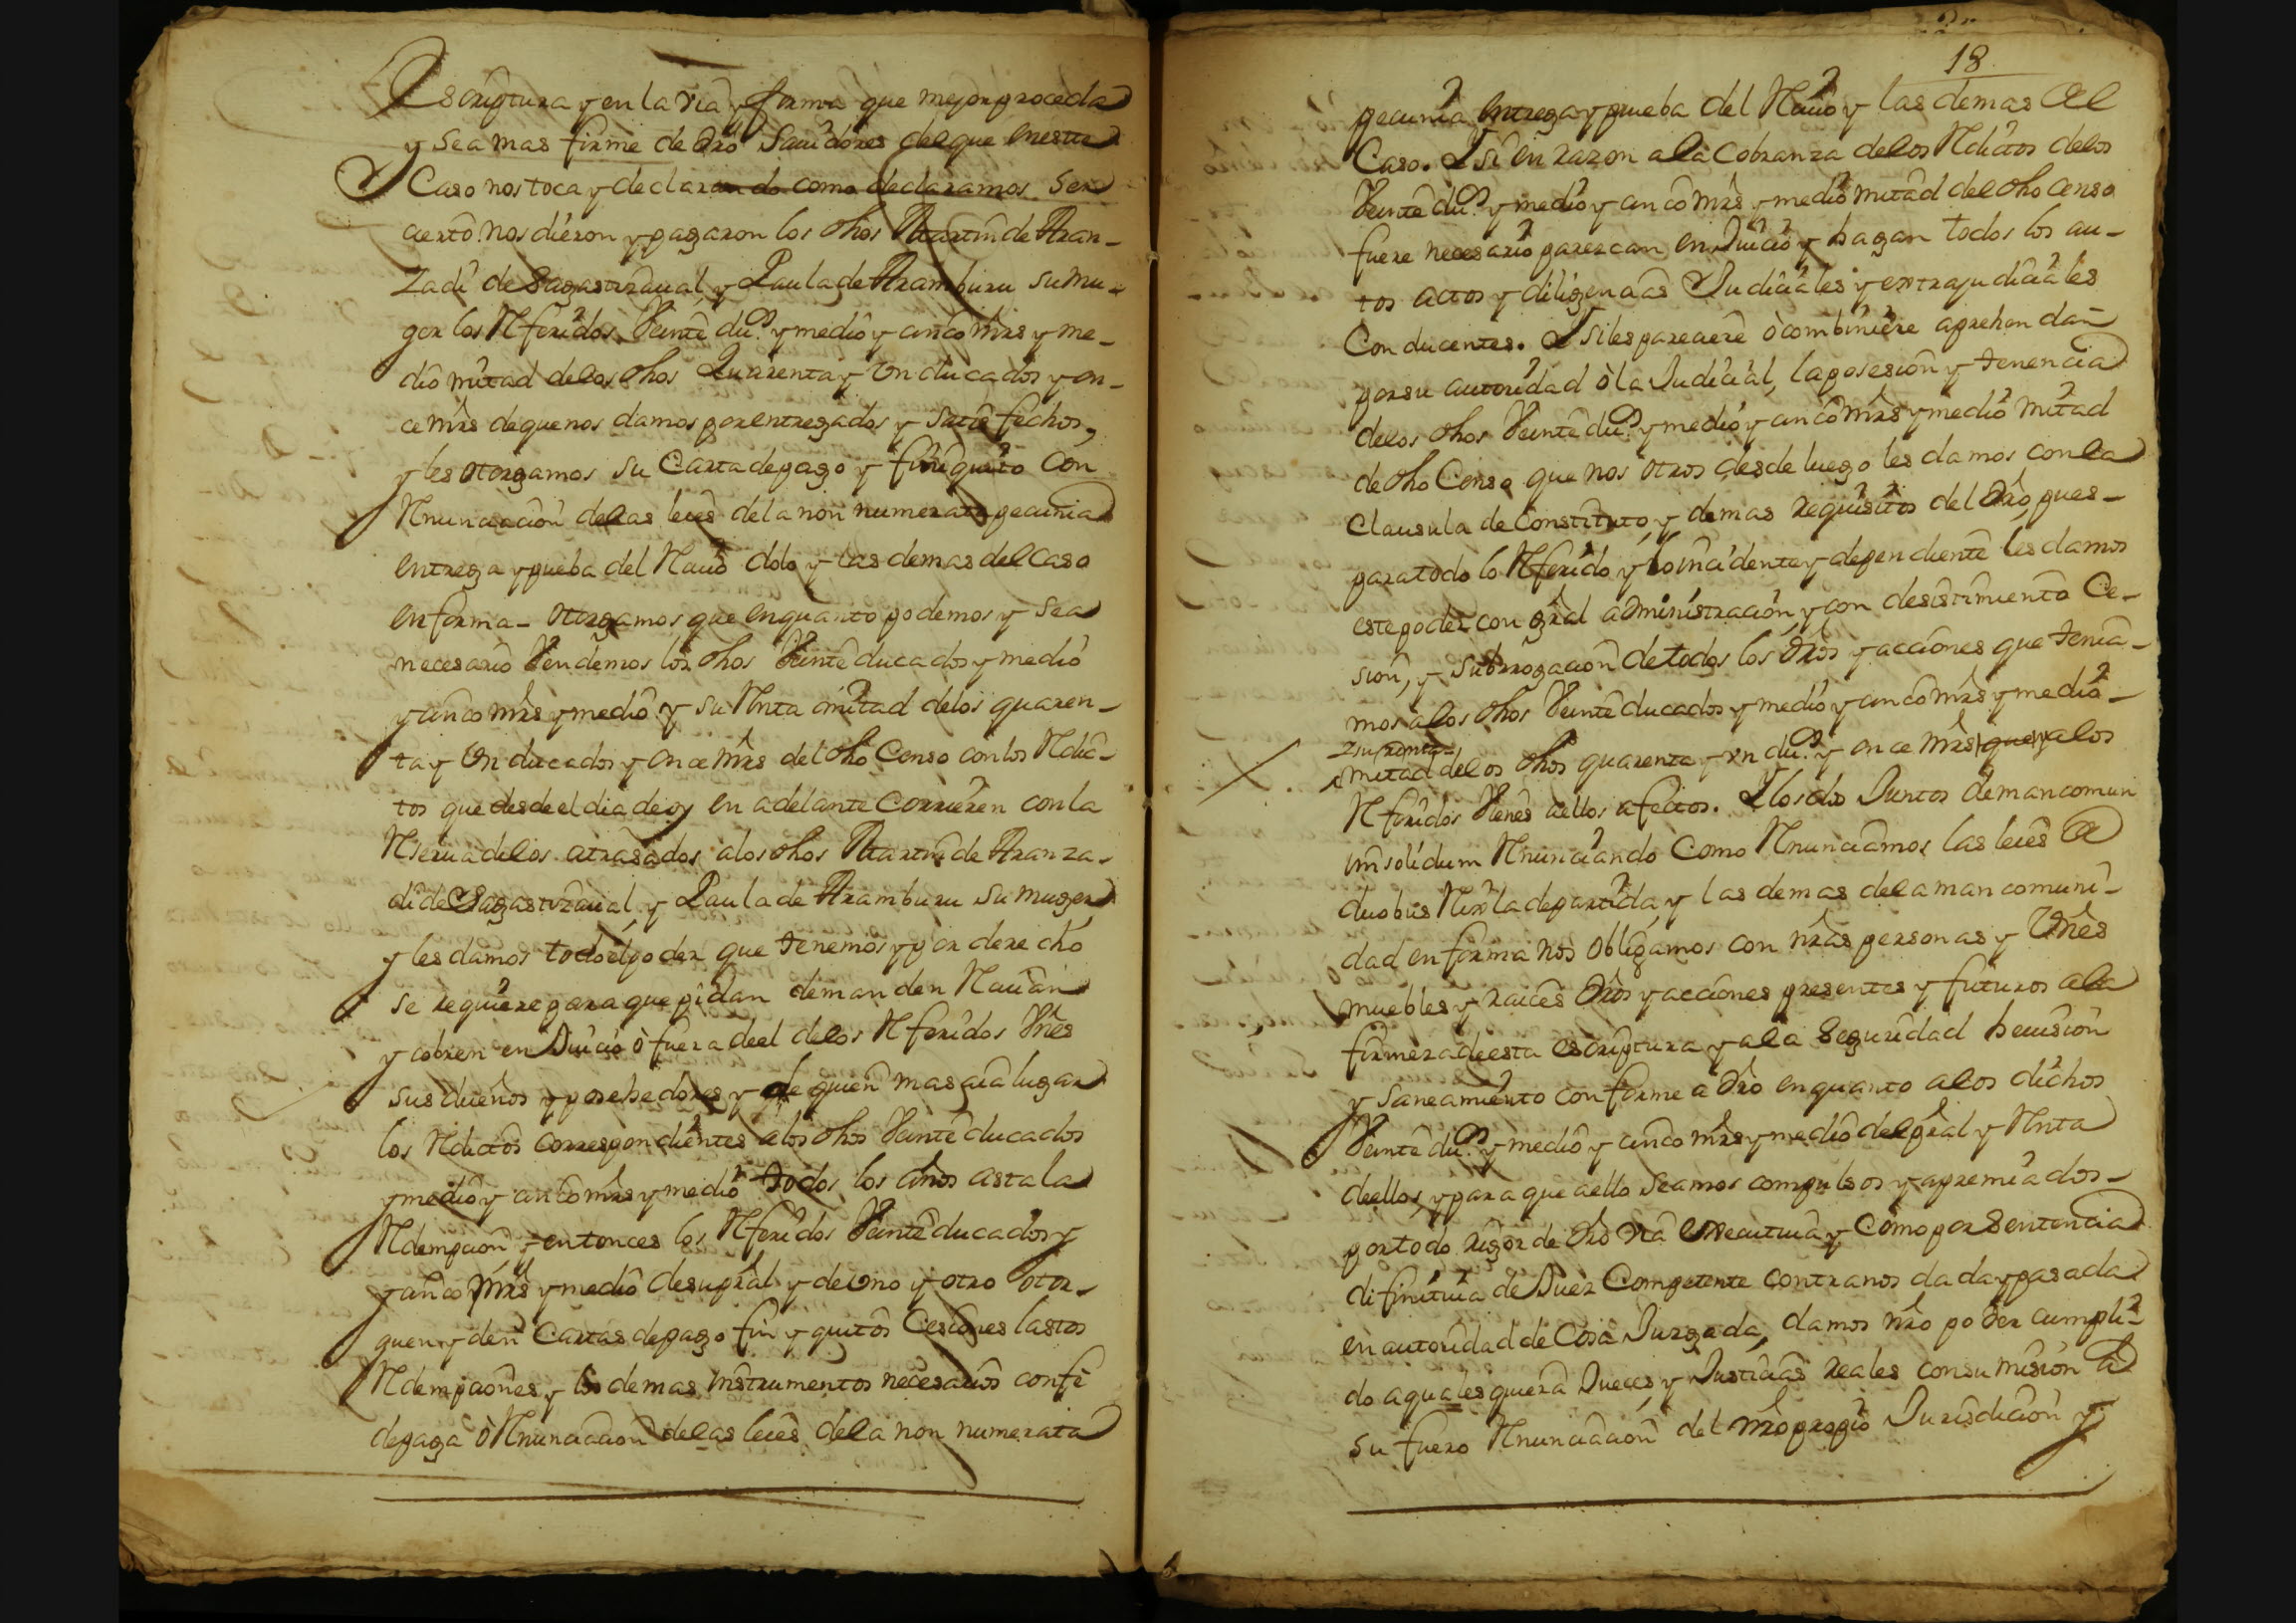 Escriptura y en la via y forma que mejor proceda
y sea mas firme de dro Sauidores del que en este
Caso nos toca y declarando como declaramos ser
cierto nos dieron y pagaron los dhos Martin de Aran-
zadi de Sagastizaual, y Paula de Aramburu su mu-
ger los Referidos Veinte du.os y medio y cinco mrs y me-
dio mitad de los dhos Quarenta y Un ducados y on-
ce mrs de que nos damos por entregados y satisfechos,
y les otorgamos su Carta de pago y finiquito con
Renunciacion de las leies de la non numerata pecunia
entrega y prueba del Reciuo dolo y las demas del caso
en forma - otorgamos que en quanto podemos y sea
necesario Vendemos los dhos Veinte ducados y medio
y cinco mrs y medio y su Renta mitad de los quaren-
ta y Un ducados y once mrs del dho Censo con los Redi-
tos que desde el dia de oy en adelante Corrieren con la
Reserua de los atrasados a los dhos Martin de Aranza-
di de Sagastizaual, y Paula de Aramburu su muger
y les damos todo el poder que tenemos y por derecho
se requiere para que pidan demanden Reciuan
y cobren en Juicio ò fuera de el de los Referidos Vnes
sus dueños y posehedores y de quien mas aia lugar
los Reditos correspondientes a los dhos Veinte ducados
y medio y cinco mrs y medio todos los años asta la
Redempcion y entonces los Referidos Veinte ducados y
y cinco mrs y medio de su pral y de Uno y otro otor-
guen y den Cartas de pago fin y quitos Cesiones lastos
Redempciones y los demas instrumentos necesarios con fe
de paga ò Renunciacion de las leies de la non numerata
18
pecunia entrega y prueba del Reciuo y las demas del
Caso. Y si en razon a la Cobranza de los Reditos de los
Veinte du.os y medio y cinco mrs y medio mitad del dho censo
fuere necesario parezcan en Juicio y hagan todos los au-
tos actos y diligencias Judiciales y extrajudiciales
Conducentes. Y si les pareciere ò combiniere aprehendan
por su autoridad ò la Judicial, la posesion y tenencia
de los dhos Veinte du.os y medio y cinco mrs y medio mitad
de dho Censo que nos otros desde luego les damos con la
Clausula de Constituto y demas requisitos del dro, pues-
para todo lo Referido y lo incidente y dependiente les damos
este poder con gral administracion, y con desistimiento Ce-
sion, y subrrogacion de todos los dros y acciones que tenia-
mos a los dhos Veinte ducados y medio y cinco mrs y medio-
y su renta
mitad de los dhos quarenta y un du.os y once mrs que y a los
Referidos Vienes a ellos afectos. Y los dos Juntos de mancomun
in solidum Renunciando Como Renunciamos las leies de
duobus Rex la de partida, y las demas de la mancomuni-
dad en forma nos obligamos con nras personas y Vnes
muebles y raices dros y acciones presentes y futuros a la
firmeza de esta escriptura y a la Seguridad heuision
y Saneamiento conforme a dro en quanto a los dichos
Veinte du.os y medio y cinco mrs y medio del pral y Renta
de ellos, y para que a ello seamos compulsos y apremiados-
por todo rigor de dro via executiua y Como por Sentencia
difinitiua de Juez Competente contra nos dada y pasada
en autoridad de Cosa Juzgada, damos nro poder cumpli-
do a quales quiera Jueces y Justicias reales con sumision a
su fuero Renunciacion del nro propio Jurisdicion y